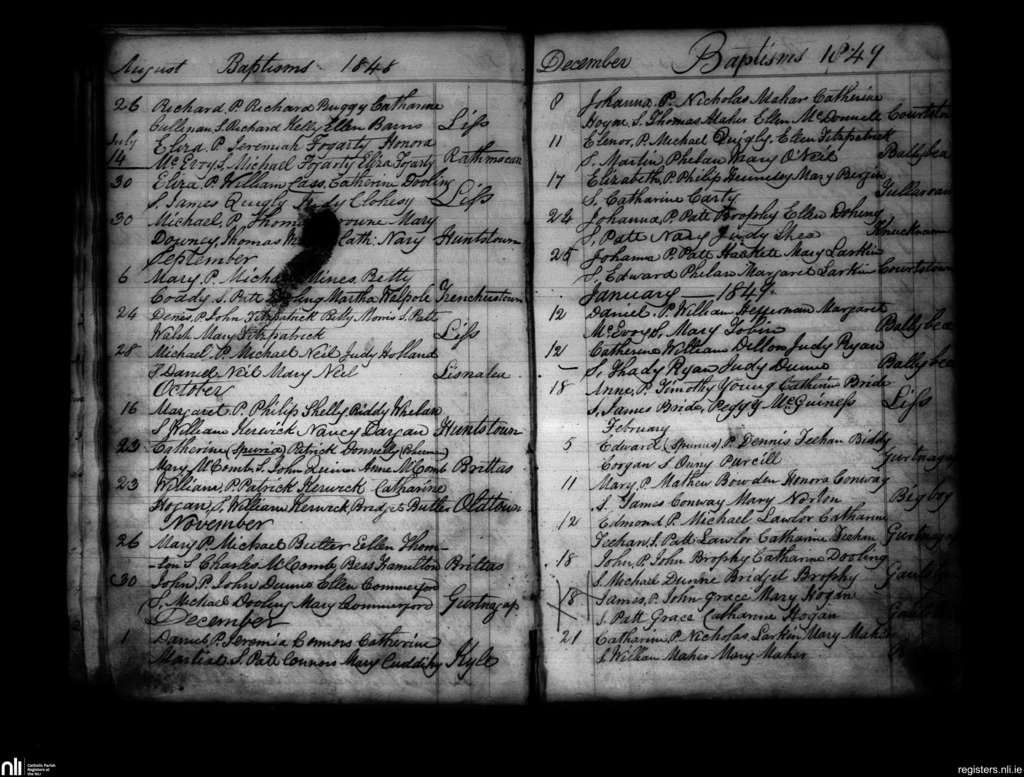 August Baptisms - 1848
26 Richard P. Richard Buggy Catharine
Cullinan S. Richard Kelly Ellen Bains Liss
July Eliza P. Jeremiah Fogarty Honora
14 McEvoy S. Michael Fogarty Eliza Fogarty Rathmoean
30 Eliza P. William Cass, Catherine Dooling
S. James Quigly Judy Clohesy Liss
30 Michael, P. Mary
Downey, Thomas Cath: Nary Huntstown
September
6 Mary P. Mines Betty
Coady S. Patt Martha Walpole Trenchestown
24 Denis, P. John Fitzpatrick Betty Morris S. Patt
Walsh Mary Fitzpatrick Liss
28 Michael, P. Michael Neil Judy Holland
S Daniel Neil Mary Neil Lisnalea
October
16 Margaret P. Philip Shelly Biddy Whelan
S William Kerwick Nancy Dargan Huntstown
23 Catherine (Spuria) Patrick Donnelly
Mary McComb S. John Quinn Anne McComb Brittas
23 William, P. Patrick Kerwick Catharine
Hogan, S. William Kerwick Bridget Butler Oldtown
November
26 Mary P. Michael Butler Ellen Thom-
-ton S. Charles McComb Bess Hamilton Brittas
30 John, P. John Dunne Ellen Commerford
S. Michael Dooling Mary Commerford Gurtnagap
December
1 Daniel P. Jeremia Connors Catherine
Martial S. Patt Connors Mary Cuddihy Kyle
December Baptisms 1849
8 Johanna P. Nicholas Mahar Catherine
Hogan S. Thomas Maher Ellen McDonnell Courtstow
11 Elenor, P. Michael Quigly Ellen Fitzpatrick
S. Martin Phelan Mary O'Neil Ballybea
17 Elizabeth, P. Philip Mary Bergin
S. Catharine Carty Tullaroan
24 Johanna P. Patt Brophy Ellen Doheny
S. Patt Nary Judy Shea
25 Johanna P. Patt Hackett Mary Larkin
S Edward Phelan Margaret Larkin Courtstown
January 1849.
12 Daniel P. William Heffernan Margaret
McEvoy S. Mary Tobin Ballybea
12 Catherine William Dillon Judy Ryan
S. Thady Ryan Judy Dunne Ballybea
18 Anne, P. Timothy Young Catherin Bride
S. James Bride, Peggy McGuiness Liss
February
5 Edward (Spurius) P. Dennis Teehan Biddy
Corgan S Owny Purcill Gurtnaga
11 Mary, P. Mathew Bowden Honora Conway
S. James Conway Mary Norton Bigboy
12 Edmond P. Michael Lawlor Catharine
Teehan, S. Patt Lawlor Catharine Teehan Gurtnaga
18 John, P. John Brophy Catharine Dooling
S. Michael Dunne Bridget Brophy
18 James, P. John Grace Mary Hogan
S. Patt Grace Catharine Hogan
21 Catharine, P. Nicholas Larkin Mary Maher
S William Maher Mary Maher
nli Catholic Parish
Registers at
the NLI
registers.nli.ie